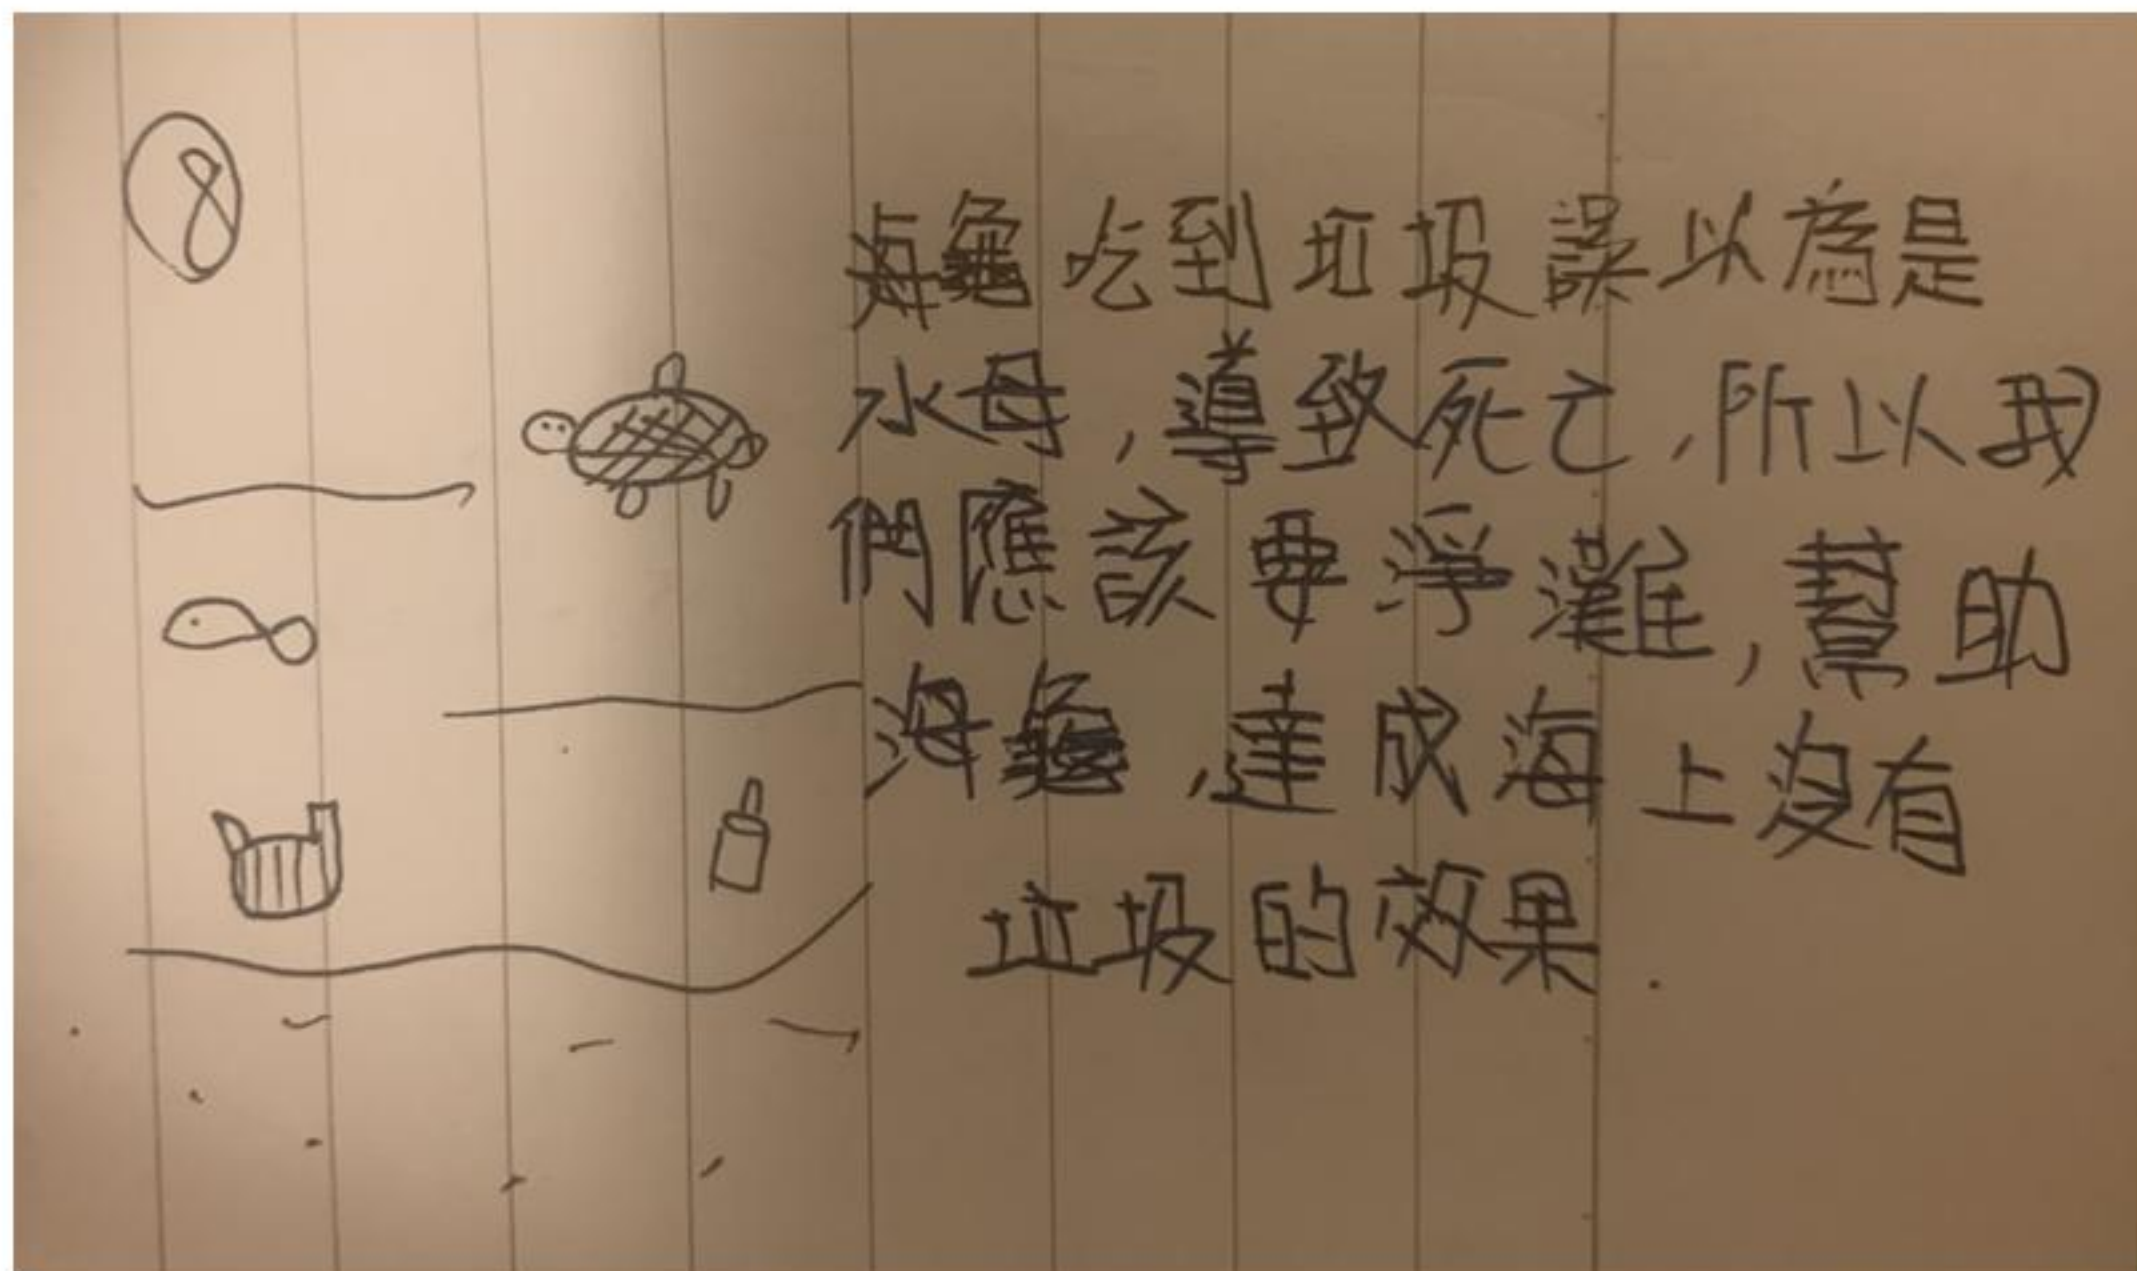 8
海龜吃到垃圾誤以為是
水母,導致死亡,所以我
們應該要淨灘,幫助
海龜,達成海上沒有
垃圾的效果.